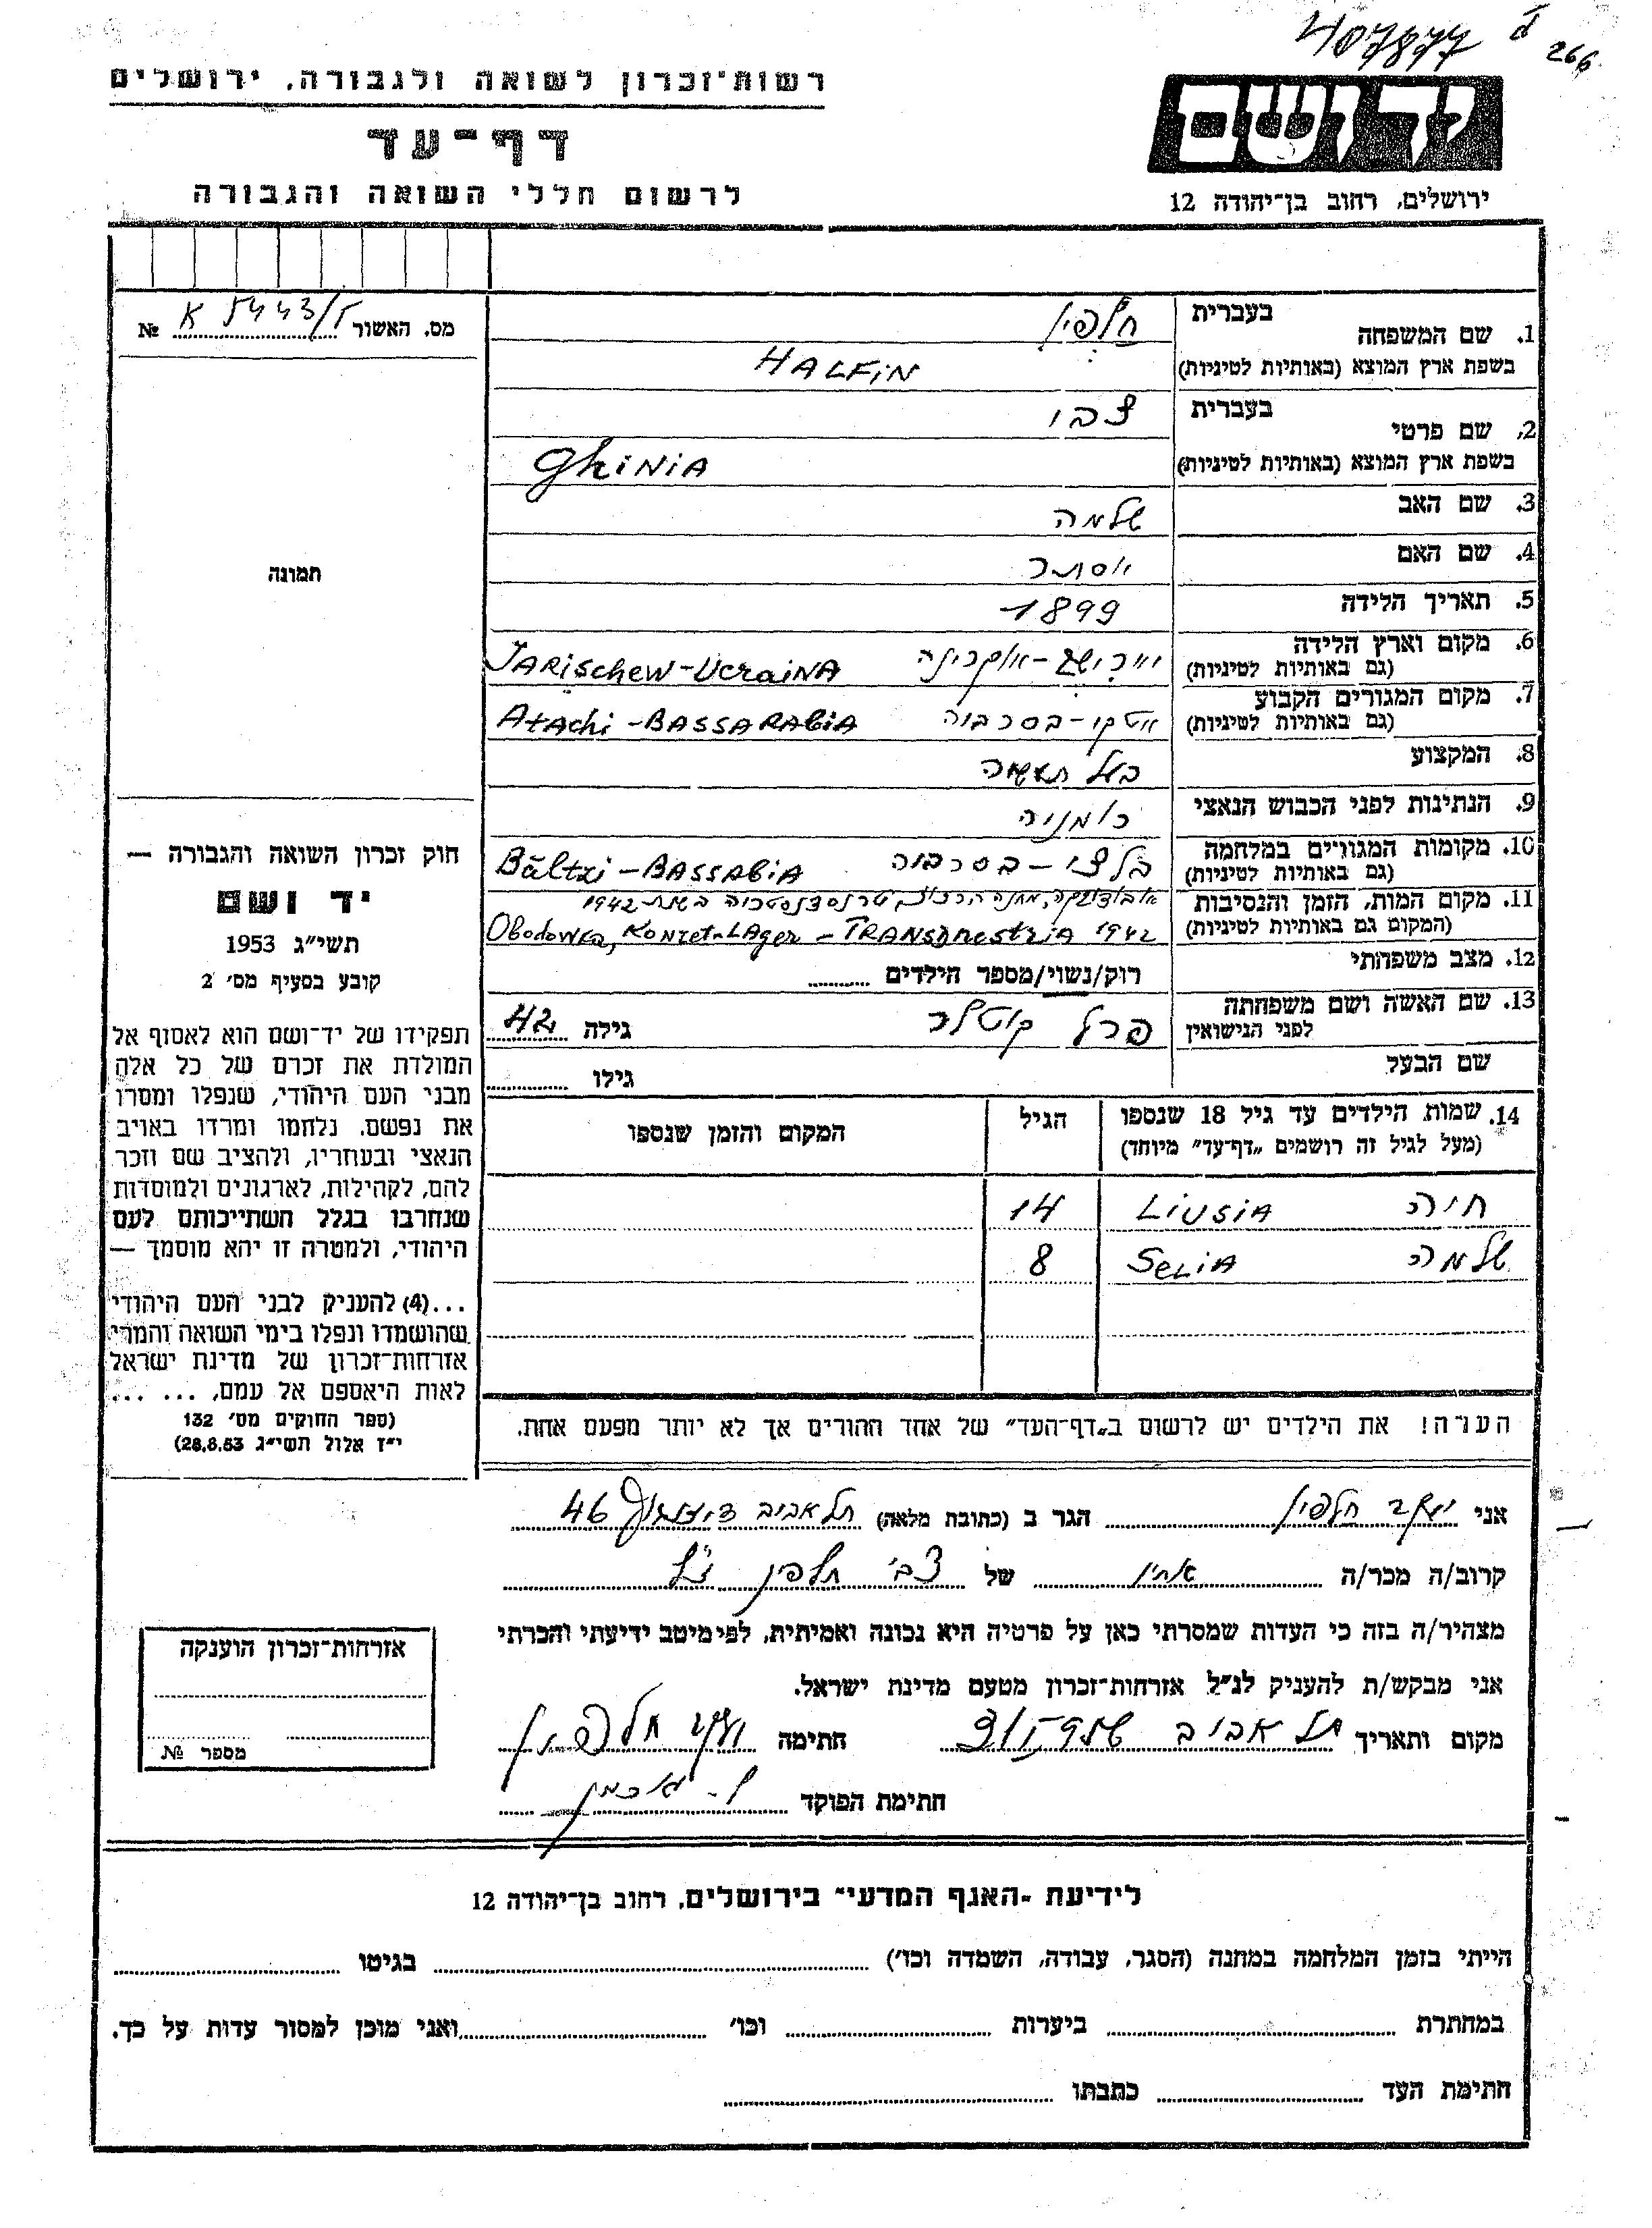 407877 266
רשות־זכרון לשואה ולגבורה, ירושלים
יד ושם
דף־עד
לרשום חללי השואה והגבורה
ירושלים, רחוב בן־יהודה 12
מס. האשור № K 5443/
1. שם המשפחה
בעברית חלפין
בשפת ארץ המוצא (באותיות לטיניות) HALFIN
2. שם פרטי
בעברית צבי
בשפת ארץ המוצא (באותיות לטיניות) GhiNiA
3. שם האב שלמה
4. שם האם אסתר
5. תאריך הלידה 1899
6. מקום וארץ הלידה
(גם באותיות לטיניות) אוקרינה JARischew - UcrainA
7. מקום המגורים הקבוע
(גם באותיות לטיניות) אטקי - בסרביה Atachi - BASSARAbiA
8. המקצוע בעל תעשיה
9. הנתינות לפני הכבוש הנאצי רומניה
10. מקומות המגורים במלחמה
(גם באותיות לטיניות) בלצי - בסרביה Bältzi - BASSAbiA
11. מקום המות, הזמן והנסיבות מחנה בשנת 1942
(המקום גם באותיות לטיניות) Obodowka, Konzet-LAger - TRANSDnestriA 1942
12. מצב משפחתי רוק/נשוי/מספר הילדים
13. שם האשה ושם משפחתה
לפני הנישואין פרל קוטלר גילה 42
שם הבעל גילו
14. שמות הילדים עד גיל 18 שנספו הגיל המקום והזמן שנספו
(מעל לגיל זה רושמים „דף־עד" מיוחד)
חיה LiUSiA 14
שלמה SeLiA 8
הערה! את הילדים יש לרשום ב„דף־העד" של אחד ההורים אך לא יותר מפעם אחת.
תמונה
חוק זכרון השואה והגבורה —
יד ושם
תשי״ג 1953
קובע בסעיף מס׳ 2
תפקידו של יד־ושם הוא לאסוף אל
המולדת את זכרם של כל אלה
מבני העם היהודי, שנפלו ומסרו
את נפשם, נלחמו ומרדו באויב
הנאצי ובעוזריו, ולהציב שם וזכר
להם, לקהילות, לארגונים ולמוסדות
שנחרבו בגלל השתייכותם לעם
היהודי, ולמטרה זו יהא מוסמך —
...(4) להעניק לבני העם היהודי
שהושמדו ונפלו בימי השואה והמרי
אזרחות־זכרון של מדינת ישראל
לאות היאספם אל עמם, ... ...
(ספר החוקים מס׳ 132
י״ז אלול תשי״ג 28.8.53)
אני יעקב חלפין הגר ב (כתובת מלאה) תל אביב דיזנגוף 46
קרוב/ה מכר/ה אחין של צבי חלפין ז״ל
מצהיר/ה בזה כי העדות שמסרתי כאן על פרטיה היא נכונה ואמיתית, לפי מיטב ידיעתי והכרתי
אני מבקש/ת להעניק לנ״ל אזרחות־זכרון מטעם מדינת ישראל.
מקום ותאריך תל אביב חתימה יעקב חלפין
חתימת הפוקד
אזרחות־זכרון הוענקה
מספר №
לידיעת „האגף המדעי" בירושלים, רחוב בן־יהודה 12
הייתי בזמן המלחמה במחנה (הסגר, עבודה, השמדה וכו׳) בגיטו
במחתרת ביערות וכו׳ ואני מוכן למסור עדות על כך.
חתימת העד כתבתו